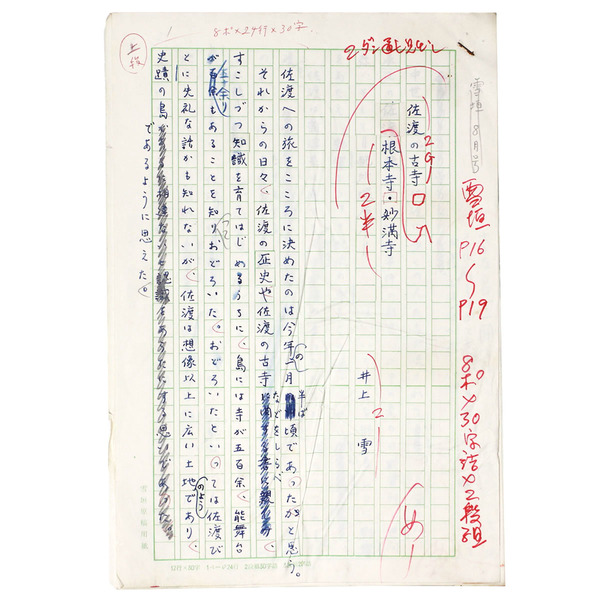 8ポ×24行×30字
上段
2ダン通し見出し
雪垣 8月号
雪垣
P16
〜
P19
8ポ×30字詰×2段組
佐渡の古寺
根本寺・妙満寺
2半
井上 雪
佐渡への旅をこころに決めたのは今年の二月半ば頃であったかと思う。
それからの日々、佐渡の歴史や佐渡の古寺などをしらべ、
すこしづつ知識を育てはじめるうちに、島には寺が五百余、能舞台
が五十余りもあることを知りおどろいた。おどろいたといっては佐渡び
とに失礼な話かも知れないが、佐渡は想像以上に広い土地であり、
史蹟の島のよう
であるように思えた。